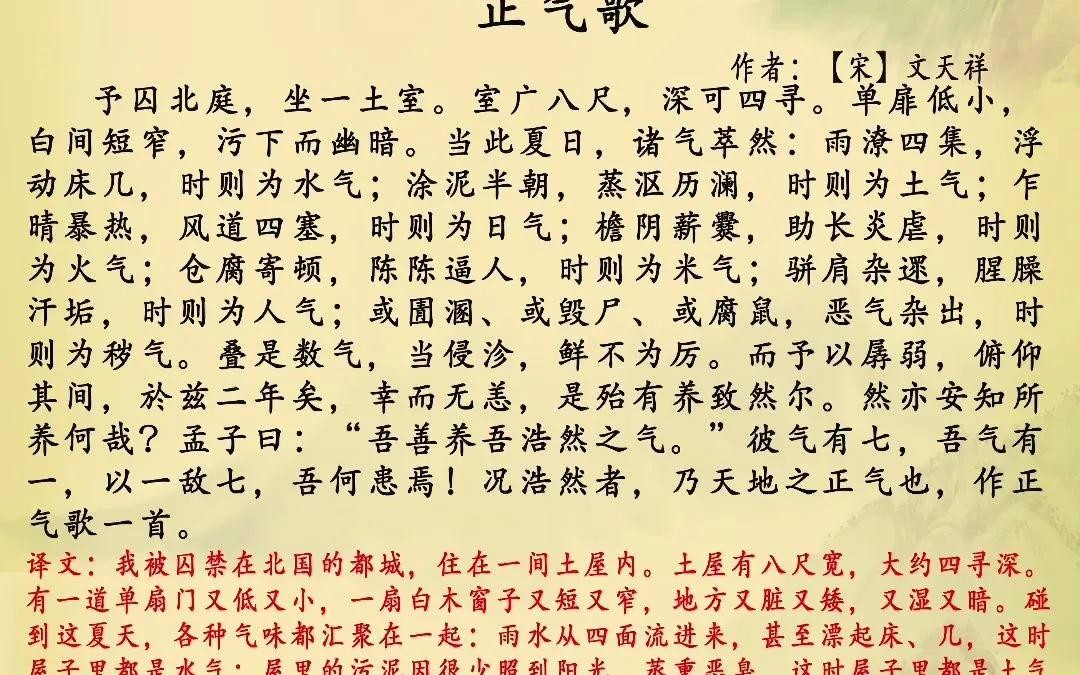 正气歌
作者：【宋】文天祥
予囚北庭，坐一土室。室广八尺，深可四寻。单扉低小，
白间短窄，污下而幽暗。当此夏日，诸气萃然：雨潦四集，浮
动床几，时则为水气；涂泥半朝，蒸沤历澜，时则为土气；乍
晴暴热，风道四塞，时则为日气；檐阴薪爨，助长炎虐，时则
为火气；仓腐寄顿，陈陈逼人，时则为米气；骈肩杂遝，腥臊
汗垢，时则为人气；或圊溷、或毁尸、或腐鼠，恶气杂出，时
则为秽气。叠是数气，当侵沴，鲜不为厉。而予以孱弱，俯仰
其间，於兹二年矣，幸而无恙，是殆有养致然尔。然亦安知所
养何哉？孟子曰：“吾善养吾浩然之气。”彼气有七，吾气有
一，以一敌七，吾何患焉！况浩然者，乃天地之正气也，作正
气歌一首。
译文：我被囚禁在北国的都城，住在一间土屋内。土屋有八尺宽，大约四寻深。
有一道单扇门又低又小，一扇白木窗子又短又窄，地方又脏又矮，又湿又暗。碰
到这夏天，各种气味都汇聚在一起：雨水从四面流进来，甚至漂起床、几，这时
屋子里都是水气；屋里的污泥因很少照到阳光，蒸熏恶臭，这时屋子里都是土气